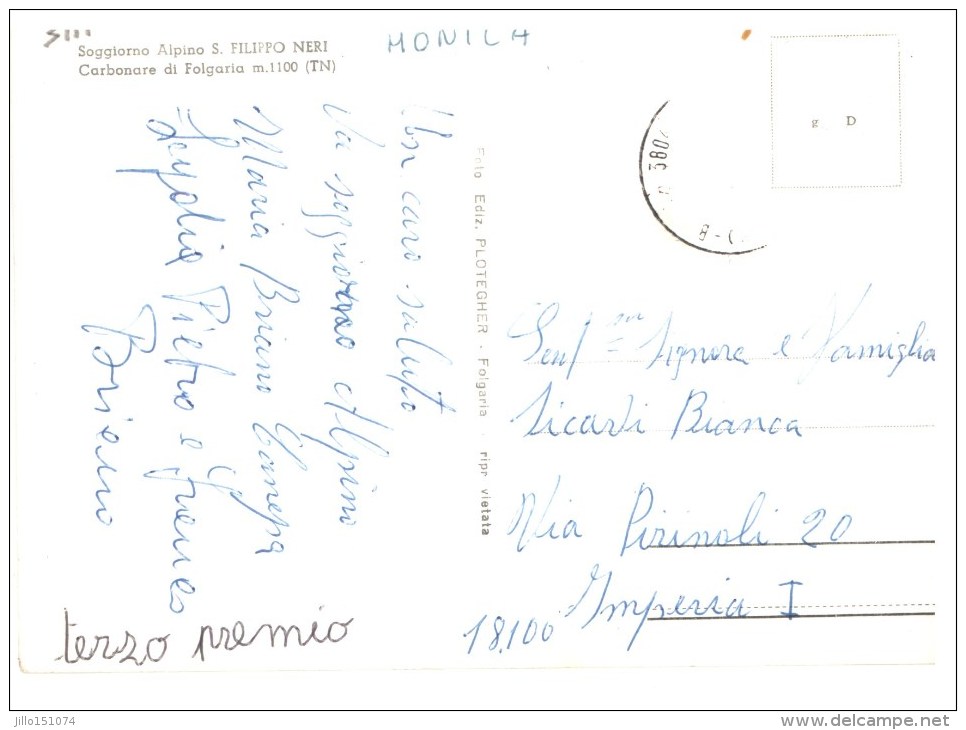 Soggiorno Alpino S. FILIPPO NERI
Carbonare di Folgaria m.1100 (TN)
MONICA
g D
Un caro saluto
Via soggiorno Alpino
Maria Briano Canepa
Pietro e
Briano
Foto Ediz. PLOTEGHER - Folgaria - ripr vietata
Gent Signora e Famiglia
Sicardi Bianca
Via Pirinoli 20
18100 Imperia I
terzo premio
jillo151074
www.delcampe.net